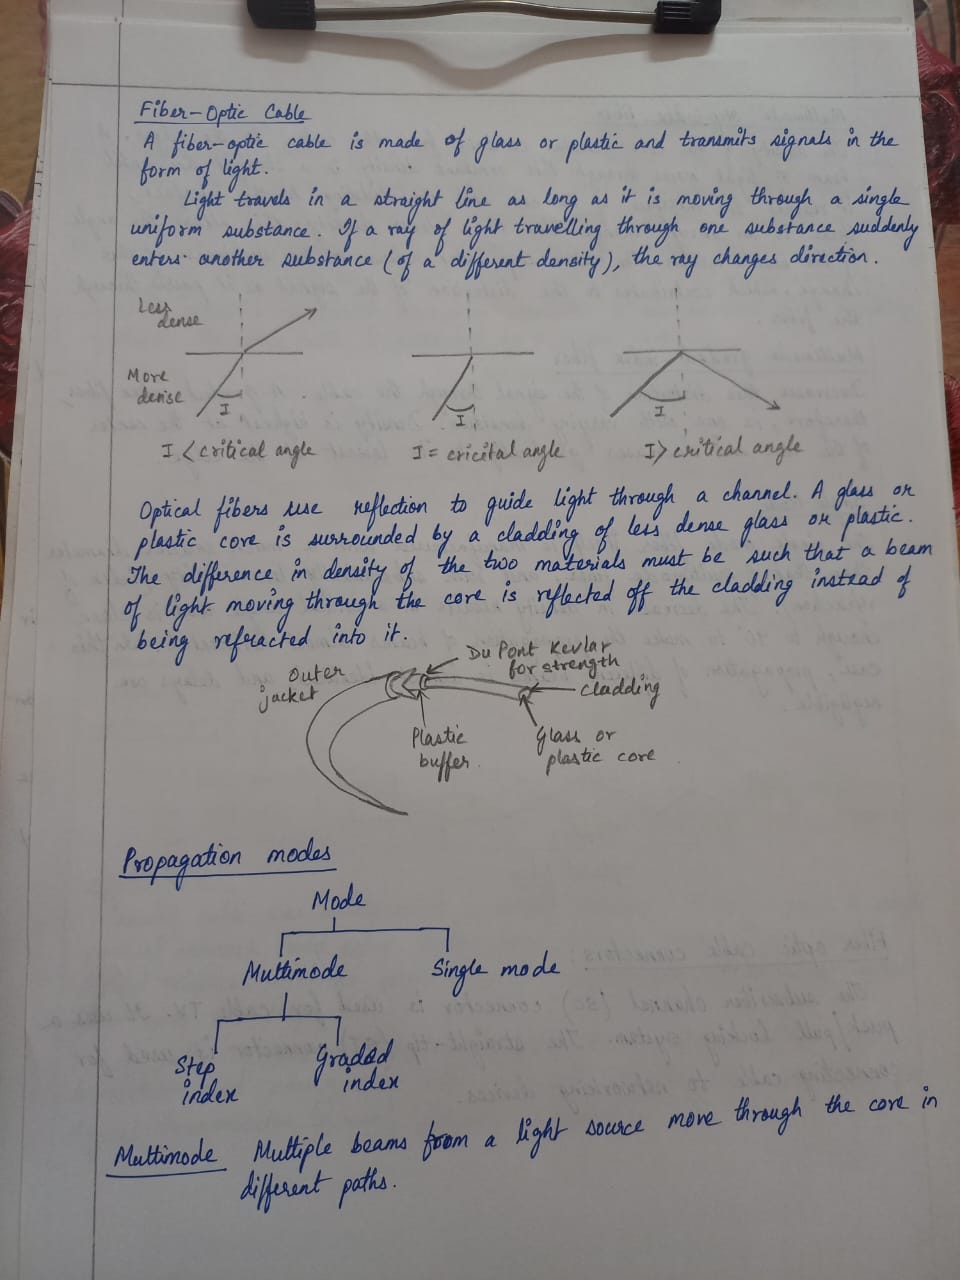 Fiber-Optic Cable
A fiber-optic cable is made of glass or plastic and transmits signals in the
form of light.
Light travels in a straight line as long as it is moving through a single
uniform substance. If a ray of light travelling through one substance suddenly
enters another substance (of a different density), the ray changes direction.
Less
dense
More
dense
I
I
I
I < critical angle
I = cricital angle
I > critical angle
Optical fibers use reflection to guide light through a channel. A glass or
plastic core is surrounded by a cladding of less dense glass or plastic.
The difference in density of the two materials must be such that a beam
of light moving through the core is reflected off the cladding instead of
being refracted into it.
Outer
jacket
Du Pont Kevlar
for strength
cladding
Plastic
buffer
Glass or
plastic core
Propagation modes
Mode
Multimode Single mode
Step
index
Graded
index
Multimode Multiple beams from a light source move through the core in
different paths.